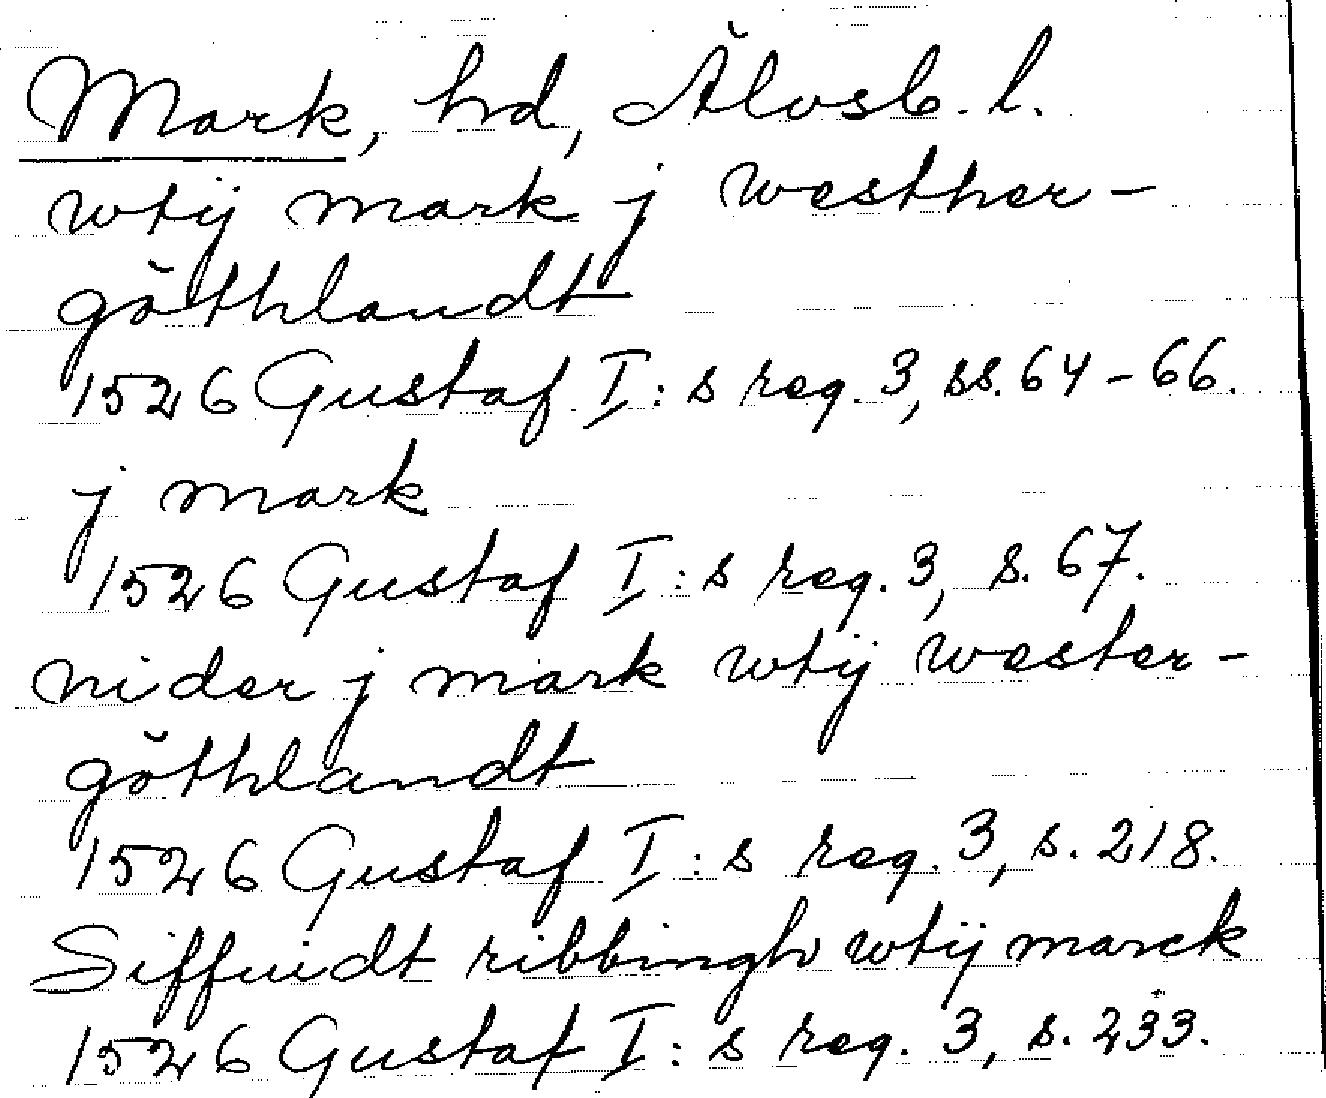 Mark, hd, Älvsb. l.
wtij mark j westher-
göthlandt
1526 Gustaf I:s reg. 3, ss. 64-66.
j mark
1526 Gustaf I:s reg. 3, s. 67.
nider j mark wtij wester-
göthlandt
1526 Gustaf I:s reg. 3, s. 218.
Siffuidt ribbingh wtij marck
1526 Gustaf I:s reg. 3, s. 233.